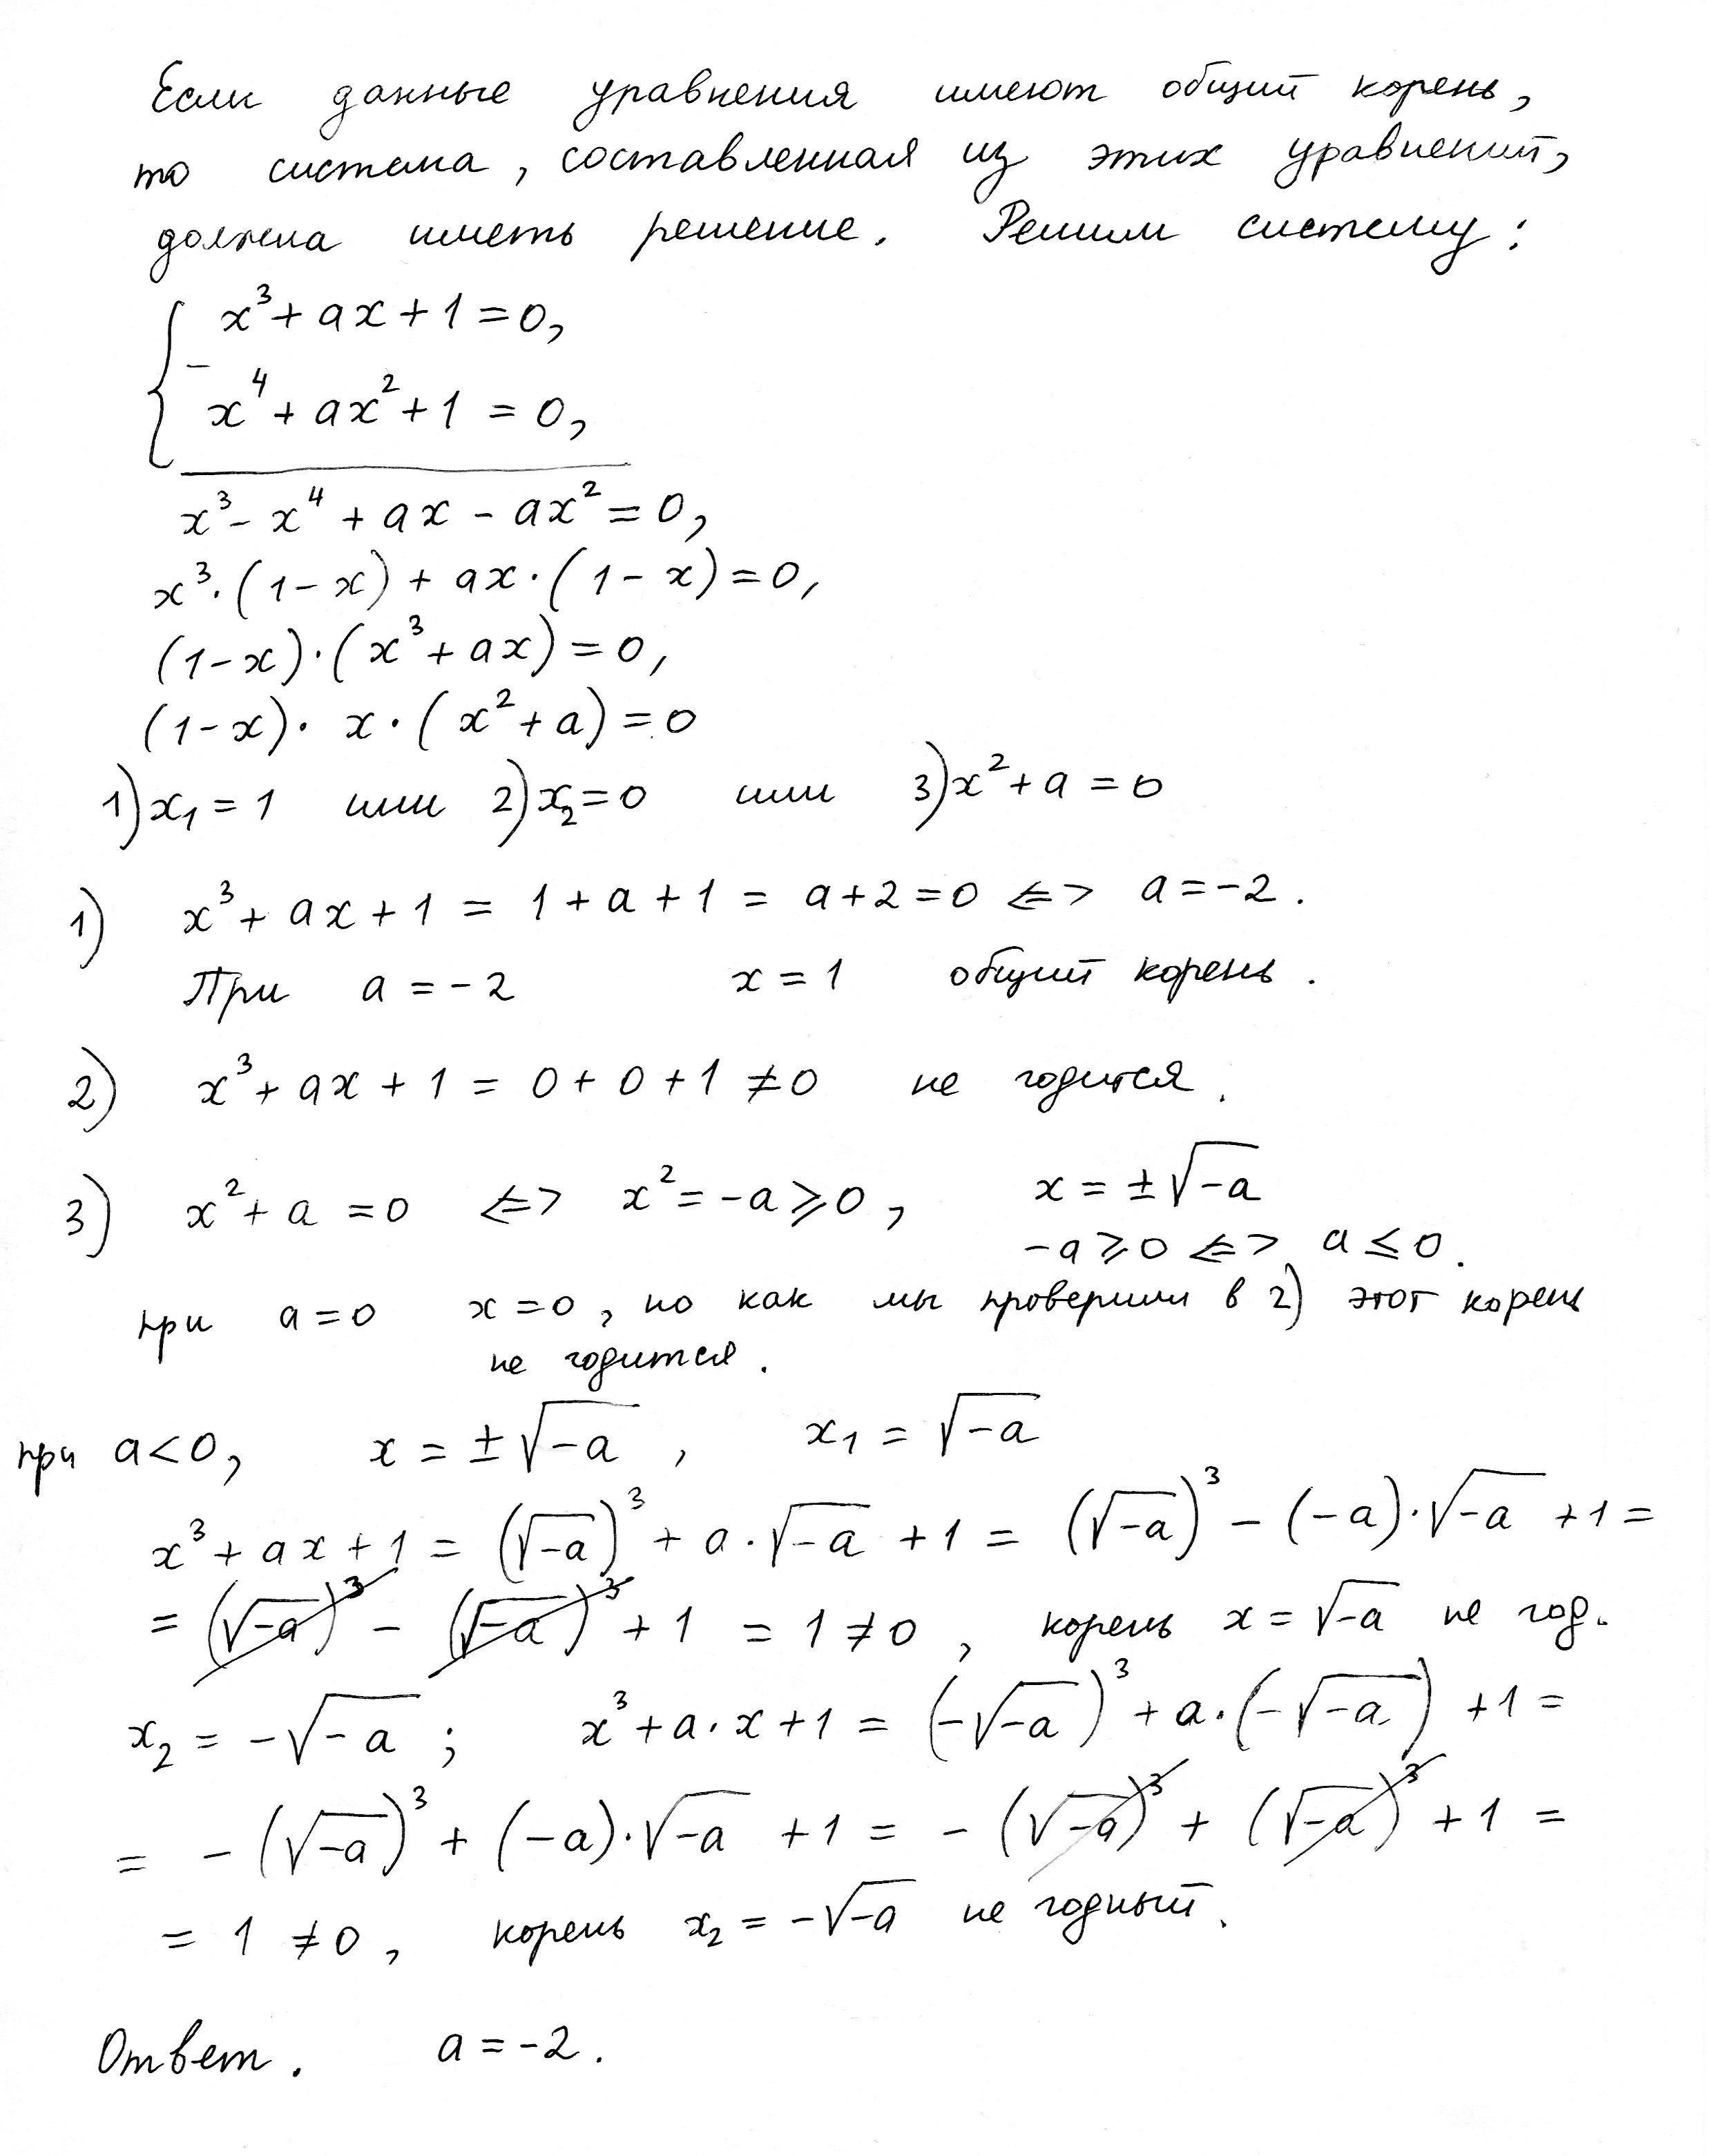 Если данные уравнения имеют общий корень,
то система, составленная из этих уравнений,
должна иметь решение. Решим систему:
x³ + ax + 1 = 0,
−
x⁴ + ax² + 1 = 0,
x³ − x⁴ + ax − ax² = 0,
x³·(1 − x) + ax·(1 − x) = 0,
(1−x)·(x³ + ax) = 0,
(1−x)· x·(x² + a) = 0
1) x₁ = 1 или 2) x₂ = 0 или 3) x² + a = 0
1) x³ + ax + 1 = 1 + a + 1 = a + 2 = 0 <=> a = −2.
При a = −2 x = 1 общий корень.
2) x³ + ax + 1 = 0 + 0 + 1 ≠ 0 не годится.
3) x² + a = 0 <=> x² = −a ⩾ 0, x = ±√−a
−a ⩾ 0 <=> a ≤ 0.
при a = 0 x = 0, но как мы проверили в 2) этот корень
не годится.
при a < 0, x = ±√−a, x₁ = √−a
x³ + ax + 1 = (√−a)³ + a·√−a + 1 = (√−a)³ − (−a)·√−a + 1 =
= (√−a)³ − (√−a)³ + 1 = 1 ≠ 0, корень x = √−a не год.
x₂ = −√−a; x³ + a·x + 1 = (−√−a)³ + a·(−√−a) + 1 =
= −(√−a)³ + (−a)·√−a + 1 = −(√−a)³ + (√−a)³ + 1 =
= 1 ≠ 0, корень x₂ = −√−a не годный.
Ответ. a = −2.